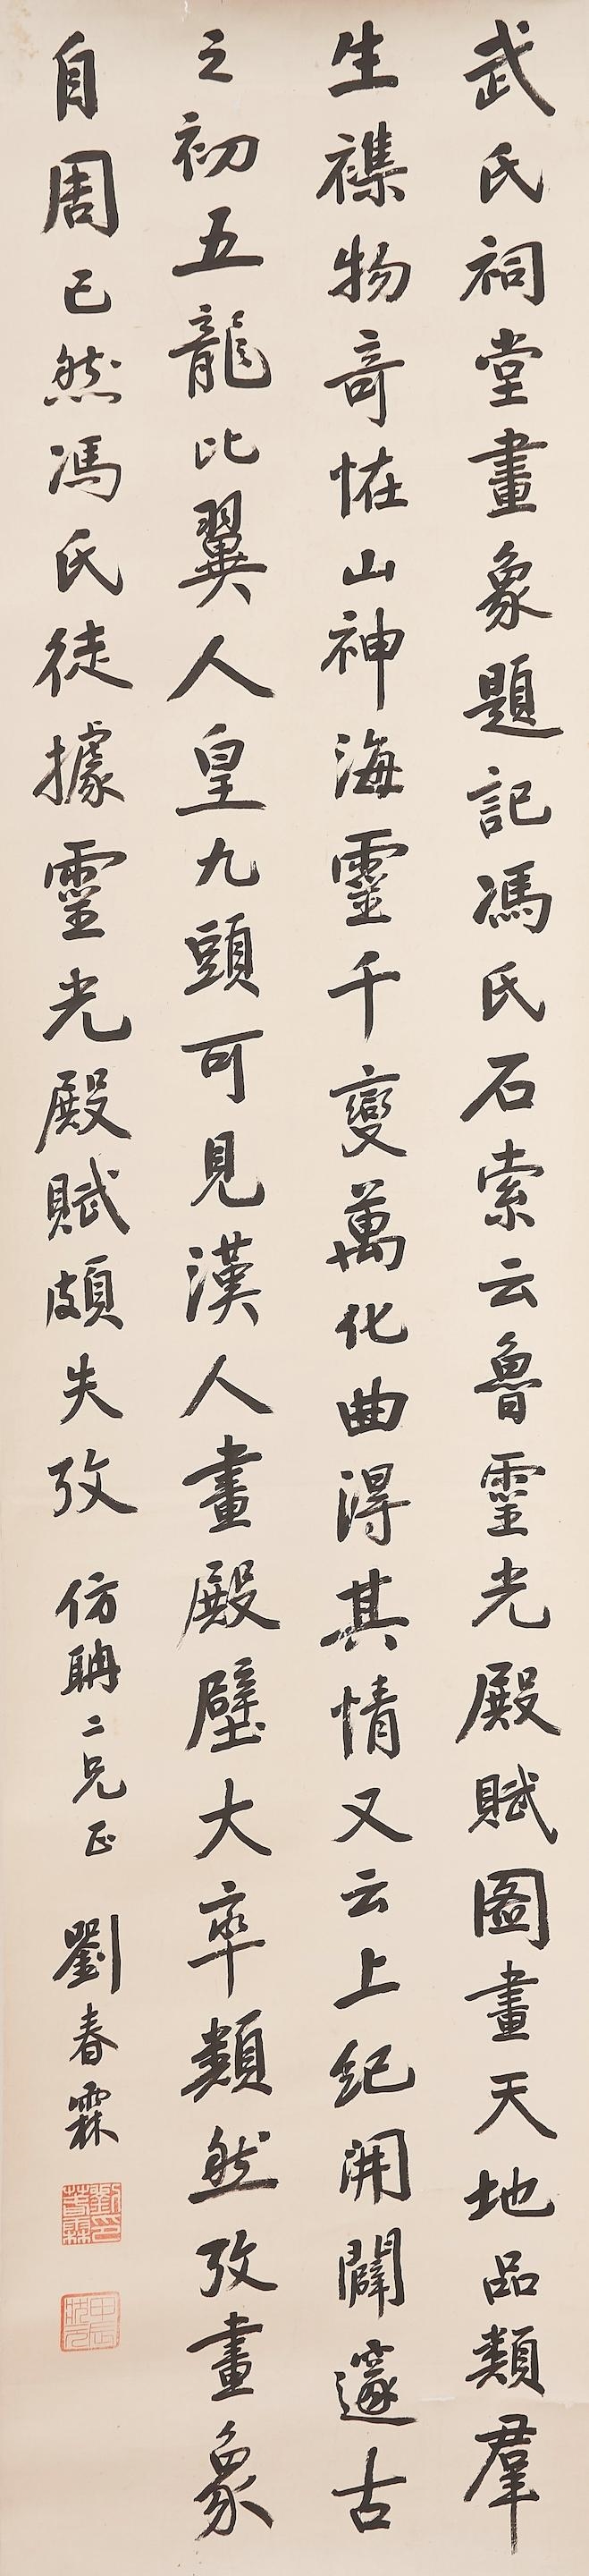 武氏祠堂畫象題記馮氏石索云魯靈光殿賦圖畫天地品類羣
生襍物奇恠山神海靈千變萬化曲得其情又云上紀開闢邃古
之初五龍比翼人皇九頭可見漢人畫殿壁大率類然攷畫象
自周已然馮氏徒據靈光殿賦頗失攷
仿聃二兄正
劉春霖
劉春霖印
甲辰狀元